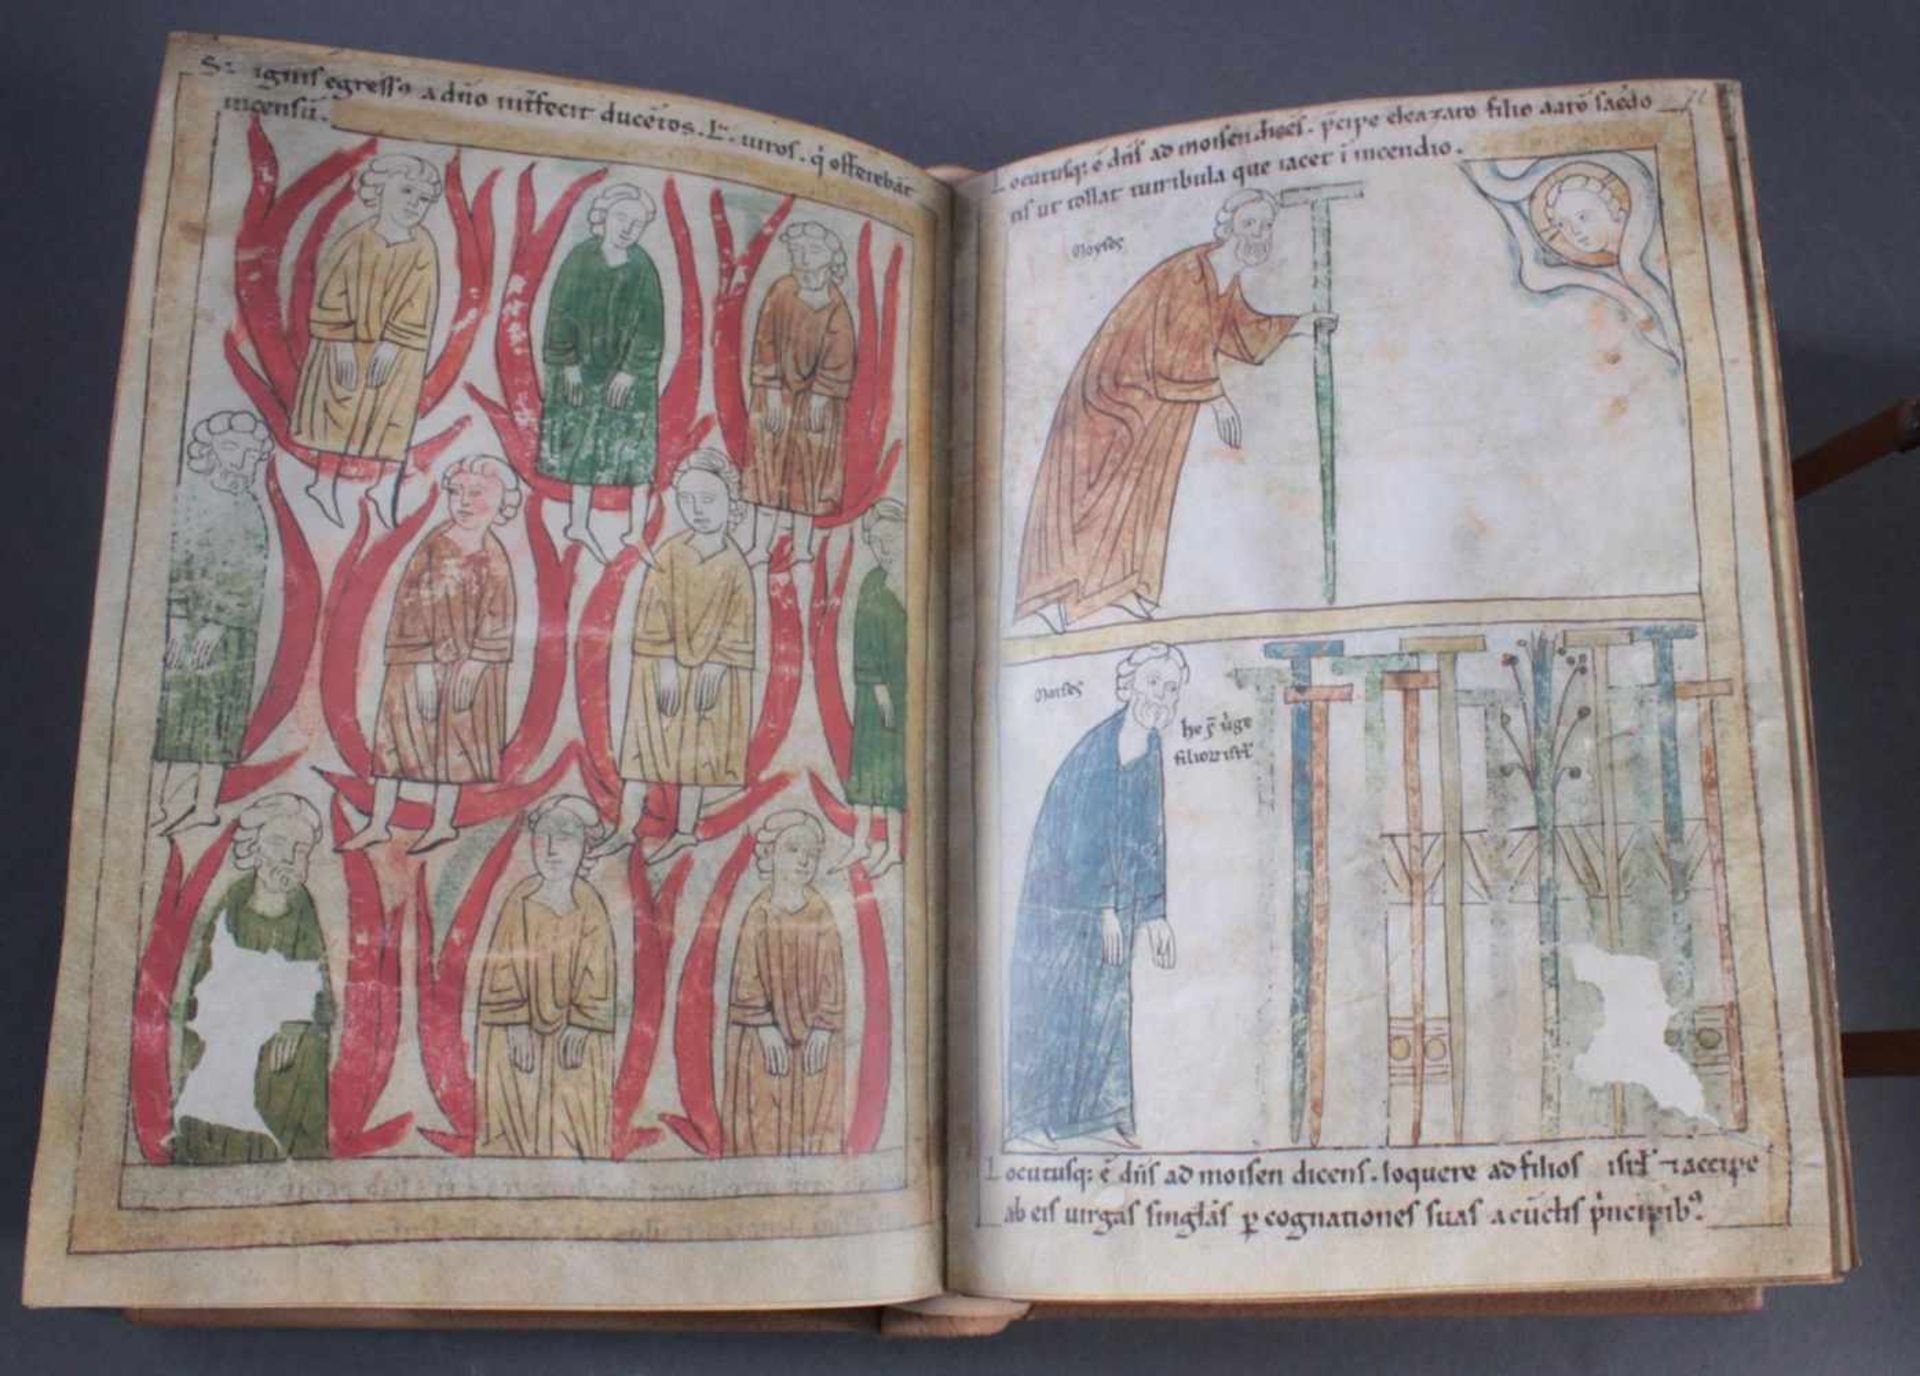 S: ignis egress⁹ a dño int̃fecit ducẽtos. L.ͣ uiros. q̇ offerebãt
incensũ.
Locutusq; ẽ dñs ad moisen dicẽs. p̃cipe eleazaro filio aarõ sac̃do
tis ut tollat turribula que iacet ĩ incendio.
Moyses
Moises
he s̃t uirge
filioꝝ isrl̃
Locutusq; ẽ dñs ad moisen dicens. loquere ad filios isrl̃ ⁊ accipe
ab eis uirgas singlãs p cognationes suas a cũctis p̃ncipib⁹.